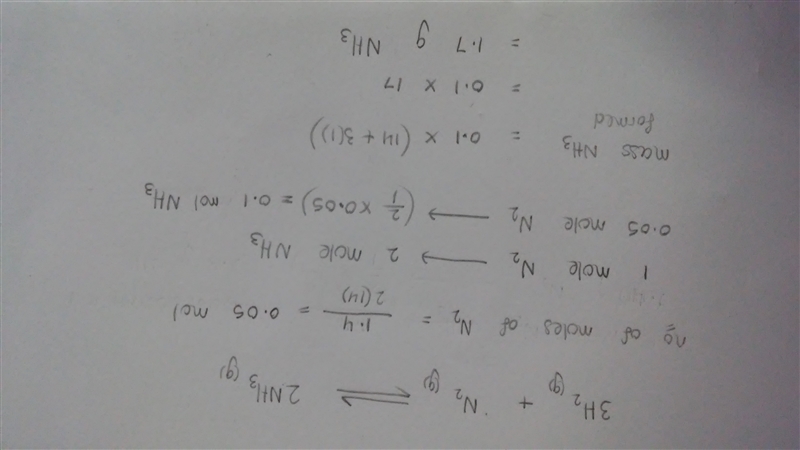 3H₂(g) + N₂(g) ⇌ 2NH₃(g)
no of moles of N₂ = 1.4 / 2(14) = 0.05 mol
1 mole N₂ → 2 mole NH₃
0.05 mole N₂ → (2/1 × 0.05) = 0.1 mol NH₃
mass NH₃ formed = 0.1 × (14 + 3(1))
= 0.1 × 17
= 1.7 g NH₃